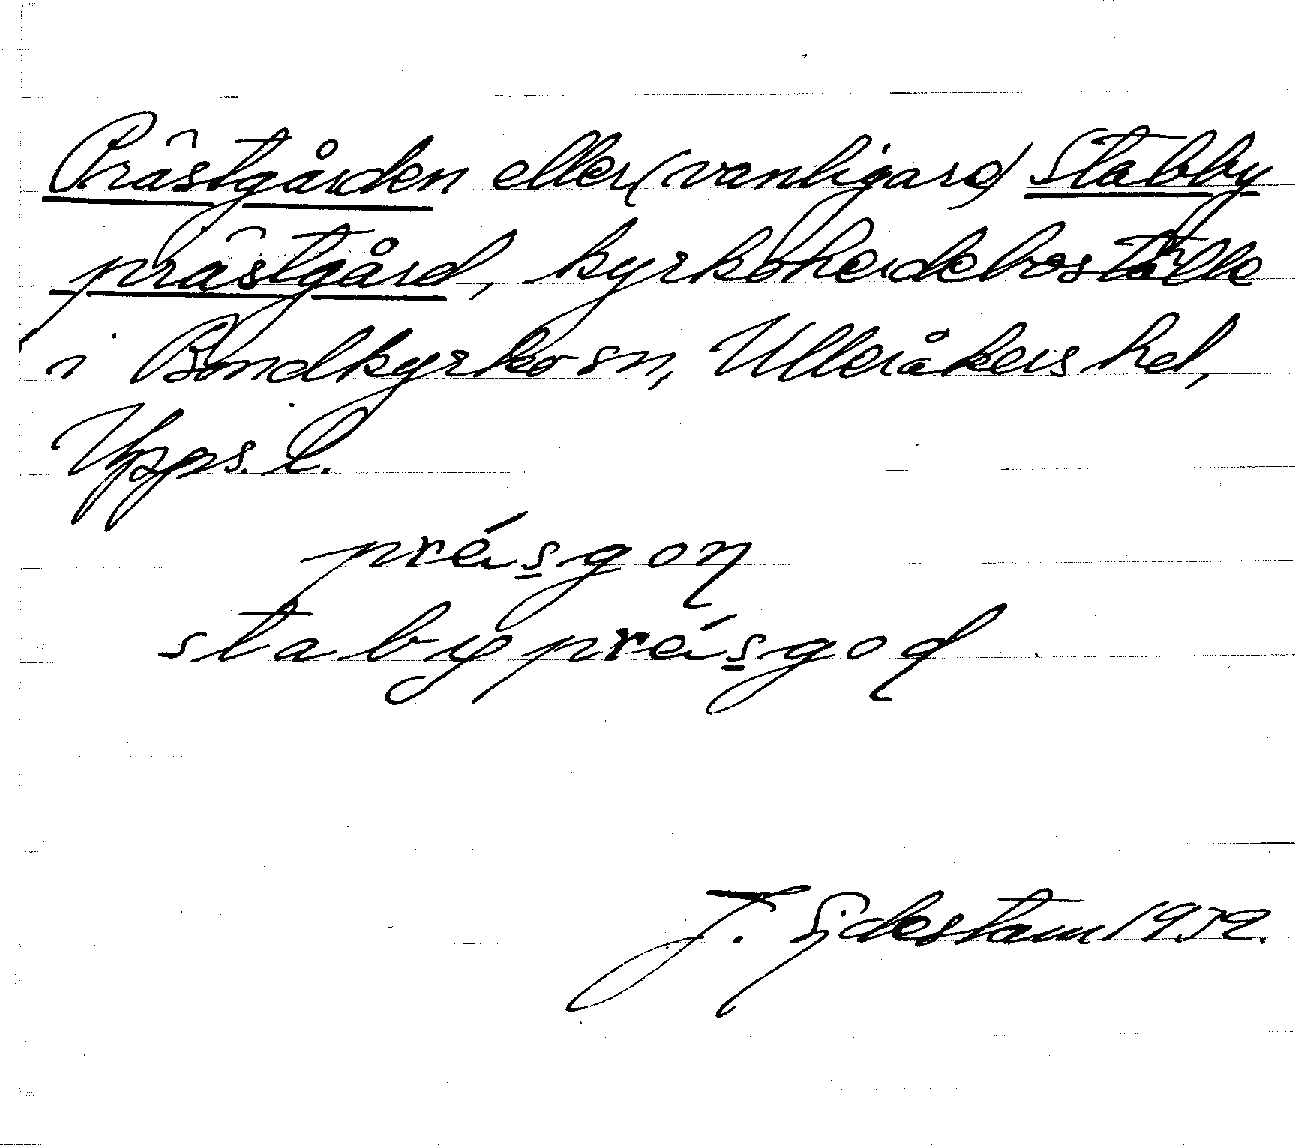 Prästgården eller (vanligare) Stabby
prästgård, kyrkoherdeboställe
i Bondkyrko sn, Ulleråkers hd,
Upps. l.
präsgoɳ
stabyprä́sgoɖ
J. Sjdestam 1952.